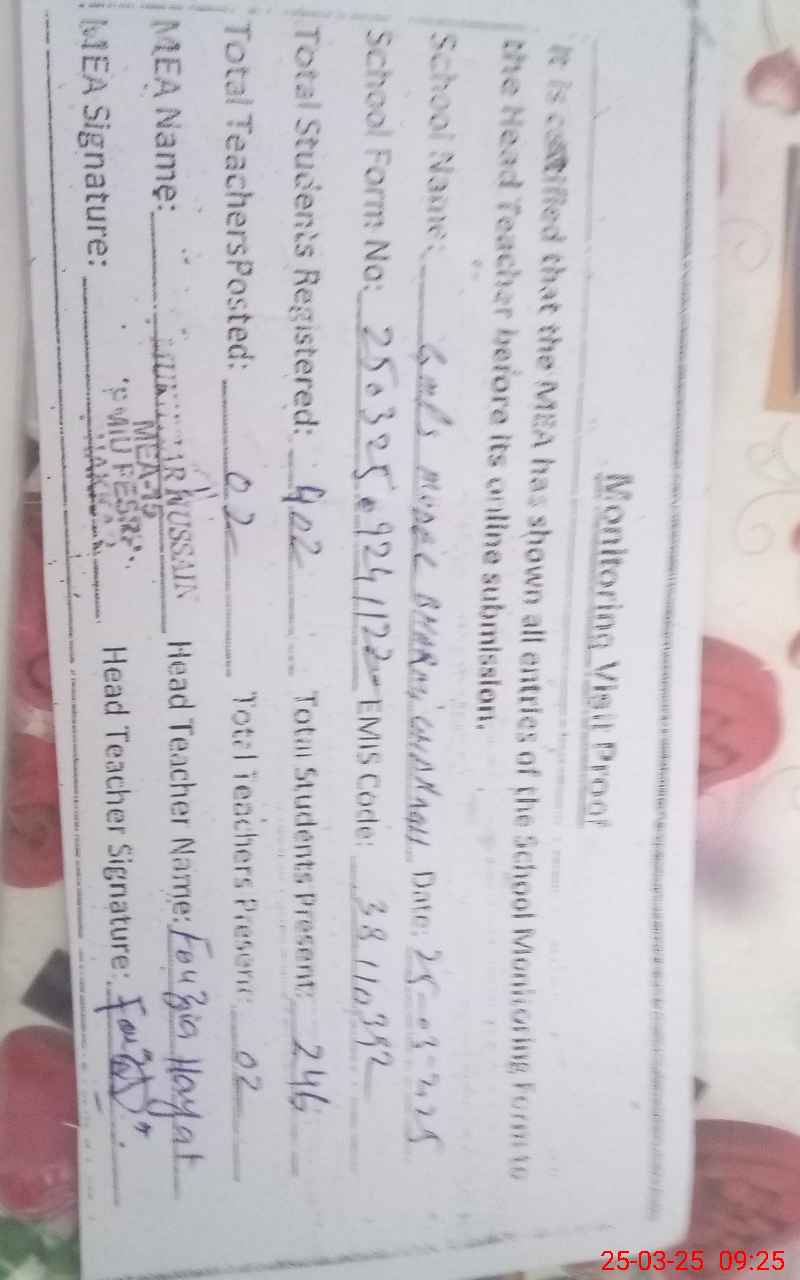 Monitoring Visit Proof
It is certified that the MEA has shown all entries of the School Monitoring Form to
the Head Teacher before its online submission.
School Name: Date: 25-03-2025
School Form No: EMIS Code: 38110392
Total Students Registered: 402 Total Students Present: 246
Total TeachersPosted: 02 Total Teachers Present: 02
MEA Name: HUSSAIN Head Teacher Name: Fouzia Hayat
MEA-15
MEA Signature: Head Teacher Signature: Fouzia
25-03-25 09:25